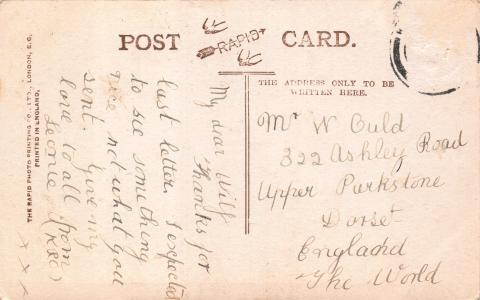 POST CARD.
RAPID
THE ADDRESS ONLY TO BE
WRITTEN HERE.
THE RAPID PHOTO PRINTING CO., LTD., LONDON, E.C.
PRINTED IN ENGLAND.
My dear Wilf
Thanks for
last letter. I expected
to see something
nice not what you
sent. Give my
love to all from
Leonie
x x x
Mr W Ould
322 Ashley Road
Upper Parkstone
Dorset
England
The World